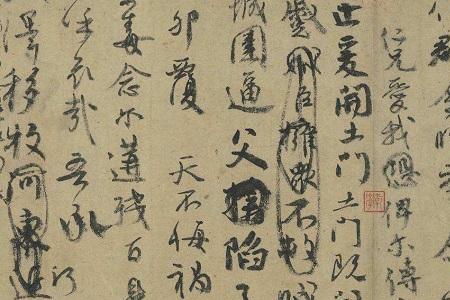 仁兄愛我俾爾傳
止爰開土門土門既
蹙賊臣擁眾不救賊
城圍逼父陷子
卵覆天不悔禍
毒念爾遘殘百身
哀哉吾承
澤移牧河東近